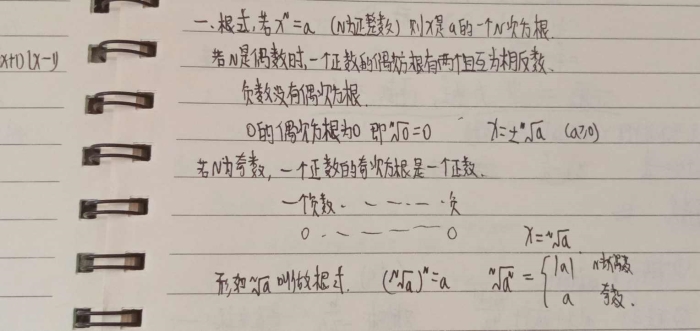 x+1)(x-1)
一.根式,若xᴺ=a (N为正整数) 则x是a的一个N次方根.
若N是偶数时,一个正数的偶次方根有两个且互为相反数.
负数没有偶次方根.
0的偶次方根为0 即ᴺ√0=0 x=±ᴺ√a (a≥0)
若N为奇数,一个正数的奇次方根是一个正数.
一个负数. — — — — 负
0. — — — — 0
x=ᴺ√a
形如ᴺ√a叫做根式. (ᴺ√a)ᴺ=a ᴺ√aᴺ = { |a| N为偶数
a 奇数.